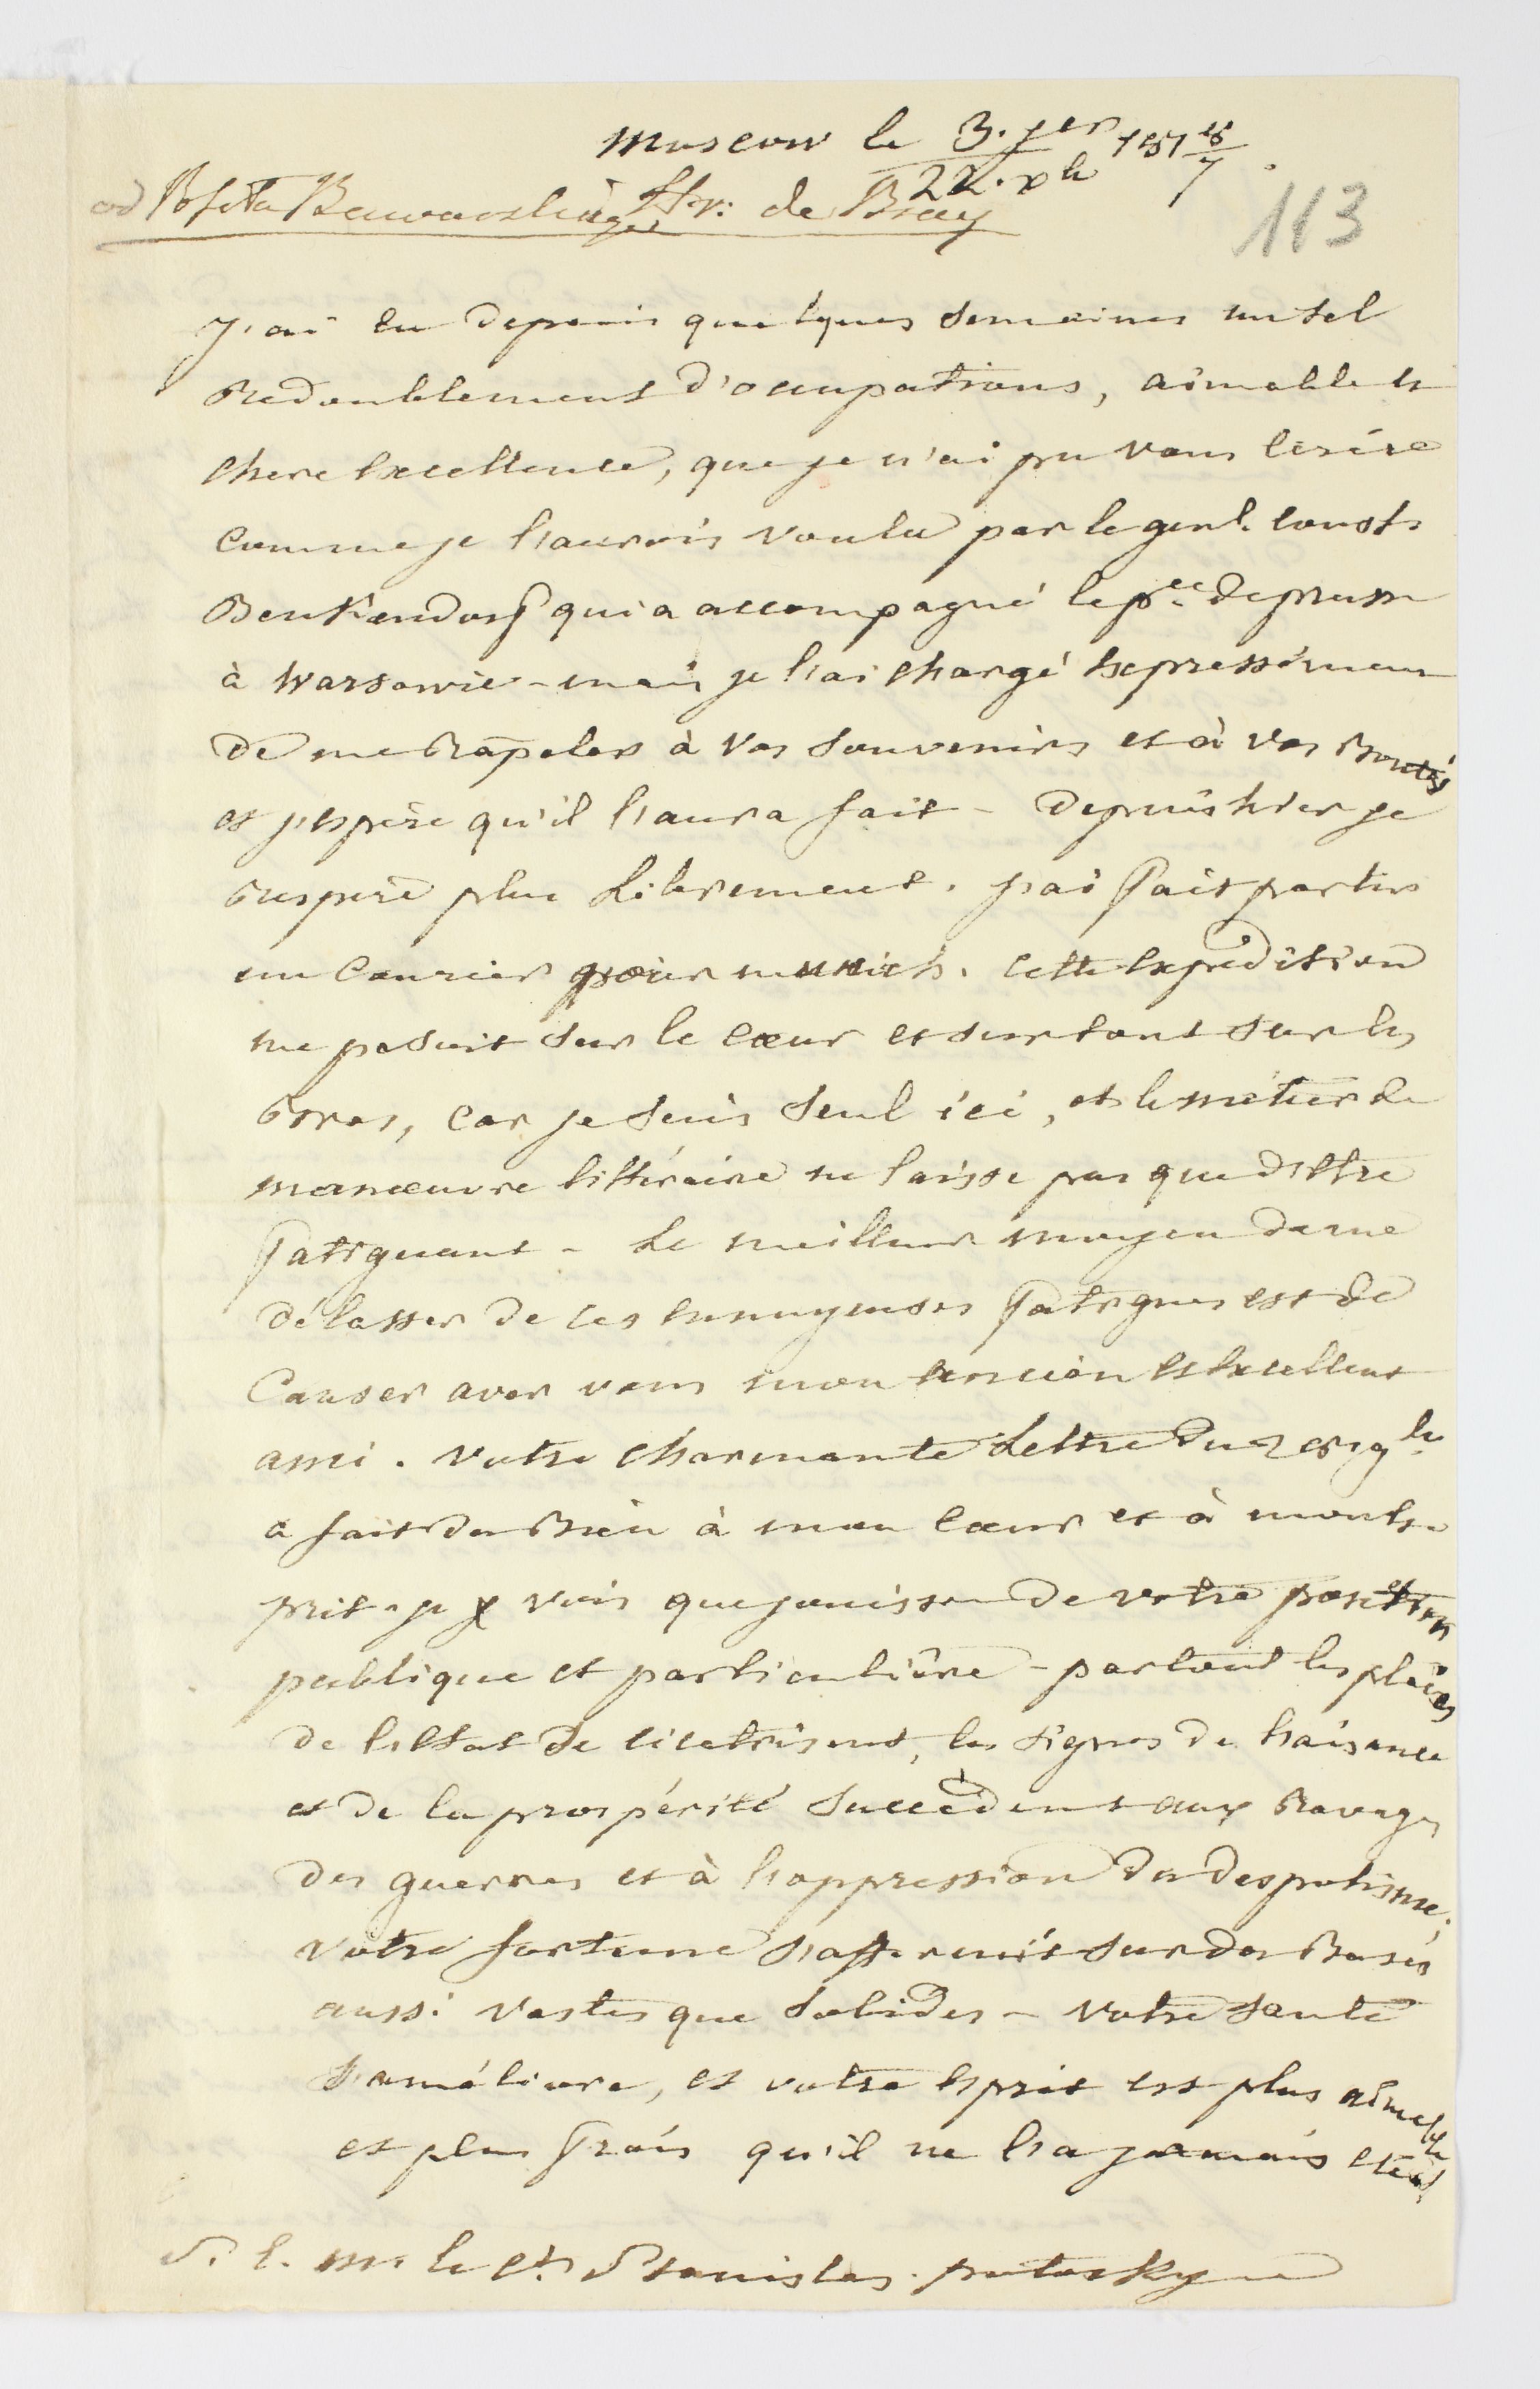 Moscow le 3. jer 181 18/7
22. xb
od Posła Bawarskiego Hr: de Bray
113
J'ai eu depuis quelques semaines un tel
Redoublement d'occupations, aimable et
chere Excellence, que je n'ai pu vous écrire
comme je l'aurois voulu par le genl. Const.
Benkendorf qui a accompagné le pce de prusse
à Warsovie - mais je l'ai chargé expressément
de me Rapeler à vos souvenirs et à vos Bontés
et j'espère qu'il l'aura fait - Depuis hier je
respire plus Librement. j'ai fait partir
un Courier pour munich. Cette expédition
me pesoit sur le coeur et surtout sur les
bras, car je suis seul ici, et le métier de
manoeuvre littéraire ne laisse pas que d'être
fatiguant - Le meilleur moyen de me
délasser de ces ennuyeuses fatigues est de
Causer avec vous mon ancien et excellent
ami. Votre charmante Lettre du 9b
a fait du Bien à mon coeur et à mon es-
prit - je vois que jouissez de votre position
publique et particulière - partout les plaies
de l'Etat se cicatrisent, les signes de l'aisance
et de la prospérité succèdent aux Ravages
des guerres et à l'oppression du despotisme.
Votre fortune s'affermit sur des Bases
aussi vastes que solides - Votre santé
s'améliore, et votre esprit est plus aimable
et plus frais qu'il ne l'a jamais été.
S. E. mr. le Ct. Stanislas potocky